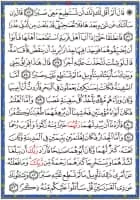 قَالَ أَلَمْ أَقُل لَّكَ إِنَّكَ لَن تَسْتَطِيعَ مَعِيَ صَبْرًا ٧٥ قَالَ إِن
سَأَلْتُكَ عَن شَيْءٍ بَعْدَهَا فَلَا تُصَاحِبْنِي قَدْ بَلَغْتَ مِن لَّدُنِّي
عُذْرًا ٧٦ فَانطَلَقَا حَتَّىٰ إِذَا أَتَيَا أَهْلَ قَرْيَةٍ اسْتَطْعَمَا أَهْلَهَا فَأَبَوْا
أَن يُضَيِّفُوهُمَا فَوَجَدَا فِيهَا جِدَارًا يُرِيدُ أَن يَنقَضَّ فَأَقَامَهُ قَالَ
لَوْ شِئْتَ لَتَّخَذْتَ عَلَيْهِ أَجْرًا ٧٧ قَالَ هَٰذَا فِرَاقُ بَيْنِي وَبَيْنِكَ
سَأُنَبِّئُكَ بِتَأْوِيلِ مَا لَمْ تَسْتَطِع عَّلَيْهِ صَبْرًا ٧٨ أَمَّا السَّفِينَةُ
فَكَانَتْ لِمَسَاكِينَ يَعْمَلُونَ فِي الْبَحْرِ فَأَرَدتُّ أَنْ أَعِيبَهَا
وَكَانَ وَرَاءَهُم مَّلِكٌ يَأْخُذُ كُلَّ سَفِينَةٍ غَصْبًا ٧٩ وَأَمَّا الْغُلَامُ
فَكَانَ أَبَوَاهُ مُؤْمِنَيْنِ فَخَشِينَا أَن يُرْهِقَهُمَا طُغْيَانًا وَكُفْرًا ٨٠
فَأَرَدْنَا أَن يُبْدِلَهُمَا رَبُّهُمَا خَيْرًا مِّنْهُ زَكَاةً وَأَقْرَبَ رُحْمًا ٨١
وَأَمَّا الْجِدَارُ فَكَانَ لِغُلَامَيْنِ يَتِيمَيْنِ فِي الْمَدِينَةِ وَكَانَ تَحْتَهُ
كَنزٌ لَّهُمَا وَكَانَ أَبُوهُمَا صَالِحًا فَأَرَادَ رَبُّكَ أَن يَبْلُغَا
أَشُدَّهُمَا وَيَسْتَخْرِجَا كَنزَهُمَا رَحْمَةً مِّن رَّبِّكَ وَمَا فَعَلْتُهُ
عَنْ أَمْرِي ذَٰلِكَ تَأْوِيلُ مَا لَمْ تَسْطِع عَّلَيْهِ صَبْرًا ٨٢
وَيَسْأَلُونَكَ عَن ذِي الْقَرْنَيْنِ قُلْ سَأَتْلُو عَلَيْكُم مِّنْهُ ذِكْرًا ٨٣